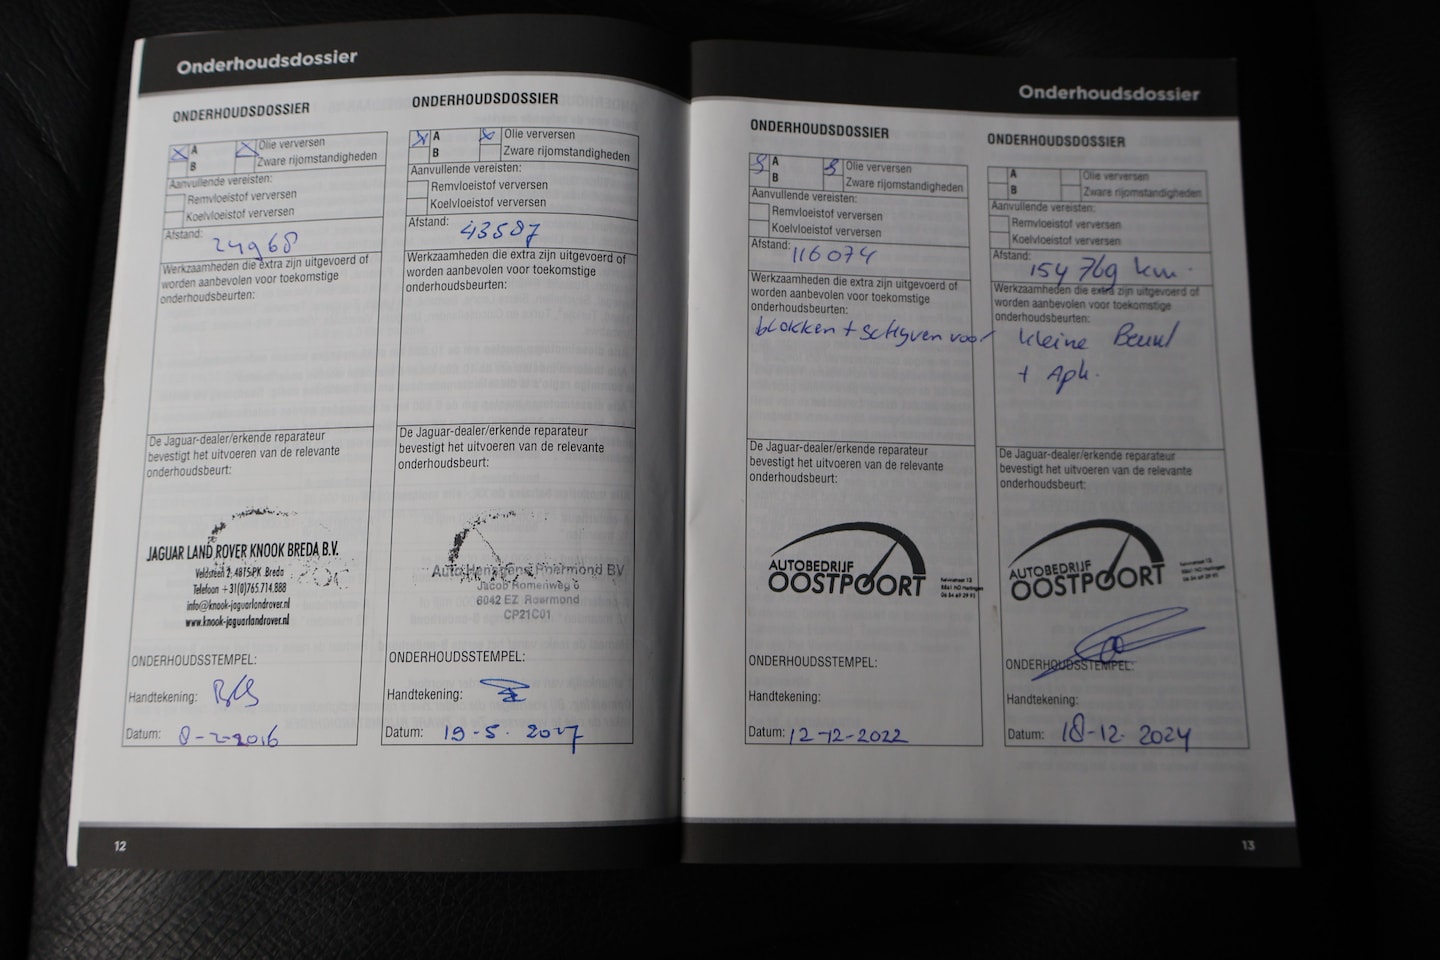 Onderhoudsdossier
ONDERHOUDSDOSSIER
A
B
Olie verversen
Zware rijomstandigheden
Aanvullende vereisten:
Remvloeistof verversen
Koelvloeistof verversen
Afstand: 24968
Werkzaamheden die extra zijn uitgevoerd of
worden aanbevolen voor toekomstige
onderhoudsbeurten:
De Jaguar-dealer/erkende reparateur
bevestigt het uitvoeren van de relevante
onderhoudsbeurt:
JAGUAR LAND ROVER KNOOK BREDA B.V.
Veldsteen 2, 4815 PK Breda
Telefoon +31(0)765.714.888
info@knook-jaguarlandrover.nl
www.knook-jaguarlandrover.nl
ONDERHOUDSSTEMPEL:
Handtekening:
Datum: 8-2-2016
12
ONDERHOUDSDOSSIER
A
B
Olie verversen
Zware rijomstandigheden
Aanvullende vereisten:
Remvloeistof verversen
Koelvloeistof verversen
Afstand: 43587
Werkzaamheden die extra zijn uitgevoerd of
worden aanbevolen voor toekomstige
onderhoudsbeurten:
De Jaguar-dealer/erkende reparateur
bevestigt het uitvoeren van de relevante
onderhoudsbeurt:
Roermond BV
Jacob Romenweg 6
6042 EZ Roermond
CP21C01
ONDERHOUDSSTEMPEL:
Handtekening:
Datum: 19-5. 2017
Onderhoudsdossier
ONDERHOUDSDOSSIER
A
B
Olie verversen
Zware rijomstandigheden
Aanvullende vereisten:
Remvloeistof verversen
Koelvloeistof verversen
Afstand: 116074
Werkzaamheden die extra zijn uitgevoerd of
worden aanbevolen voor toekomstige
onderhoudsbeurten:
blokken + schijven voor
De Jaguar-dealer/erkende reparateur
bevestigt het uitvoeren van de relevante
onderhoudsbeurt:
AUTOBEDRIJF
OOSTPOORT
ONDERHOUDSSTEMPEL:
Handtekening:
Datum: 12-12-2022
ONDERHOUDSDOSSIER
A
B
Olie verversen
Zware rijomstandigheden
Aanvullende vereisten:
Remvloeistof verversen
Koelvloeistof verversen
Afstand: 154769 km.
Werkzaamheden die extra zijn uitgevoerd of
worden aanbevolen voor toekomstige
onderhoudsbeurten:
kleine Beurt
+ Apk.
De Jaguar-dealer/erkende reparateur
bevestigt het uitvoeren van de relevante
onderhoudsbeurt:
AUTOBEDRIJF
OOSTPOORT
ONDERHOUDSSTEMPEL:
Handtekening:
Datum: 18-12. 2024
13